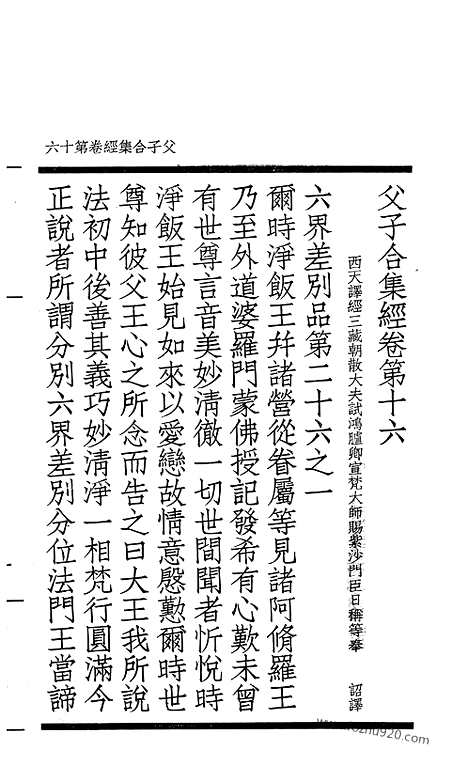 父子合集經卷第十六
父子合集經卷第十六
西天譯經三藏朝散大夫試鴻臚卿宣梵大師賜紫沙門臣日稱等奉 詔譯
六界差別品第二十六之一
爾時淨飯王幷諸營從眷屬等見諸阿脩羅王
乃至外道婆羅門蒙佛授記發希有心歎未曾
有世尊言音美妙清徹一切世間聞者忻悅時
淨飯王始見如來以愛戀故情意慇懃爾時世
尊知彼父王心之所念而告之曰大王我所說
法初中後善其義巧妙清淨一相梵行圓滿今
正說者所謂分別六界差別分位法門王當諦